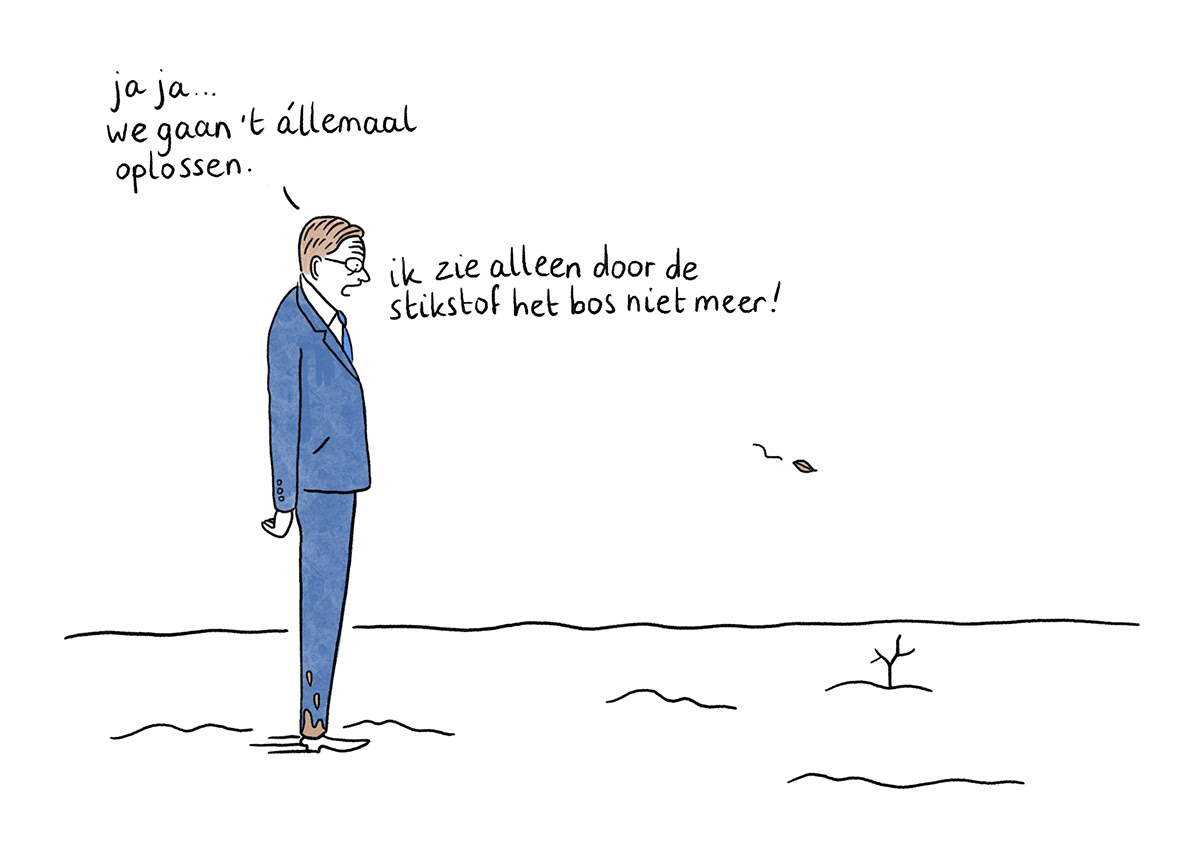 ja ja...
we gaan 't állemaal
oplossen.
ik zie alleen door de
stikstof het bos niet meer!